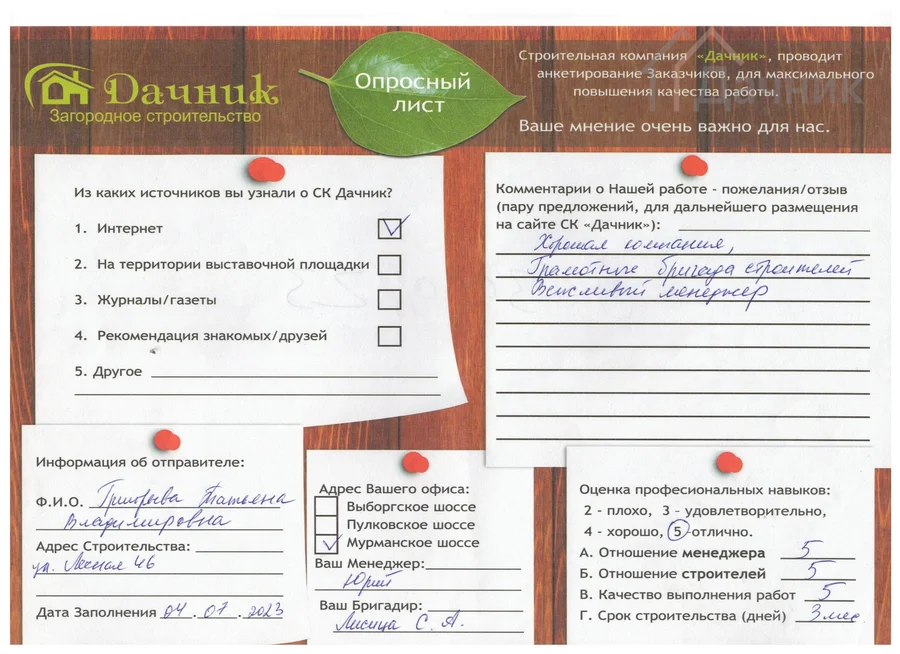 Дачник
Загородное строительство
Опросный
лист
Строительная компания «Дачник», проводит
анкетирование Заказчиков, для максимального
повышения качества работы.
Дачник
Ваше мнение очень важно для нас.
Из каких источников вы узнали о СК Дачник?
1. Интернет
2. На территории выставочной площадки
3. Журналы/газеты
4. Рекомендация знакомых/друзей
5. Другое
Комментарии о Нашей работе - пожелания/отзыв
(пару предложений, для дальнейшего размещения
на сайте СК «Дачник»):
Хорошая компания,
Грамотные бригада строителей
Вежливый менеджер
Информация об отправителе:
Ф.И.О. Григорьева Татьяна
Владимировна
Адрес Строительства:
ул. Лесная 46
Дата Заполнения 04.07.2023
Адрес Вашего офиса:
Выборгское шоссе
Пулковское шоссе
Мурманское шоссе
Ваш Менеджер:
Юрий
Ваш Бригадир:
Лисица С. А.
Оценка професиональных навыков:
2 - плохо, 3 - удовлетворительно,
4 - хорошо, 5-отлично.
А. Отношение менеджера 5
Б. Отношение строителей 5
В. Качество выполнения работ 5
Г. Срок строительства (дней) 3 мес.